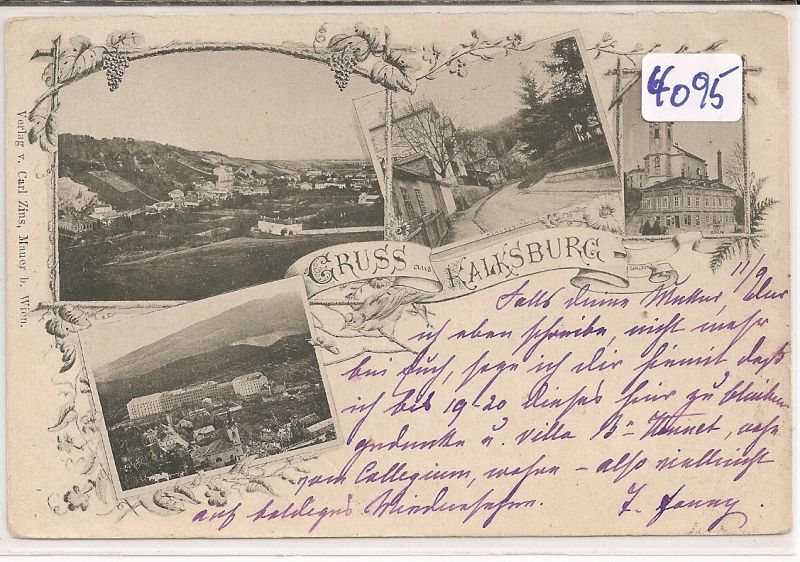 4095
Verlag v. Carl Zins, Mauer b. Wien.
GRUSS aus KALKSBURG
11/9
Falls deine Mutter, der
ich eben schreibe, nicht mehr
bei Euch, sage ich dir hiemit daß
ich bis 19-20 dieses hier zu bleiben
gedenke u. Villa
vom Collegium, wohne – also vielleicht
auf baldiges Wiedersehen. F. Fanny.